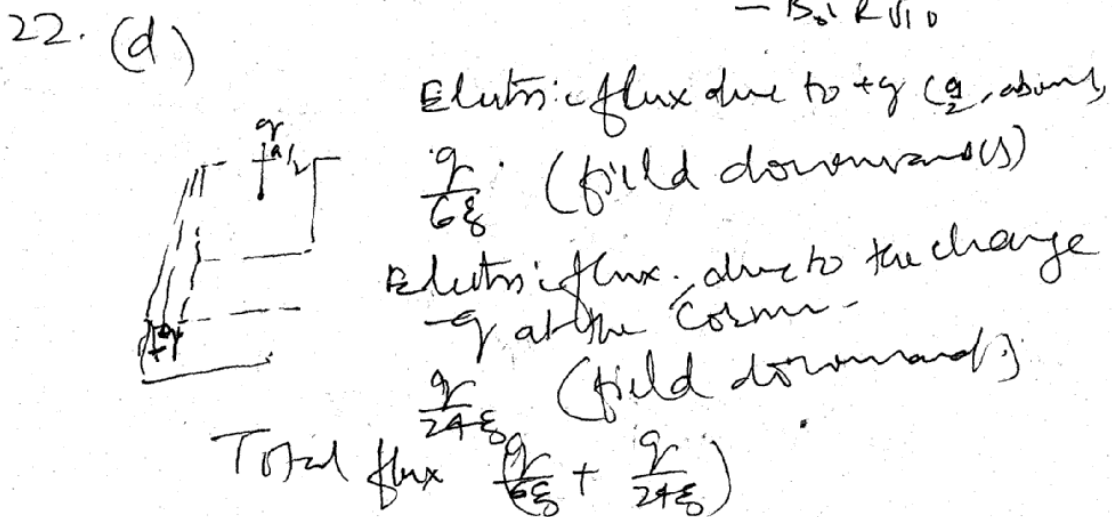 22. (d)
Electric flux due to +q (a/2, above)
q/6ε₀ (field downwards)
Electric flux due to the charge
-q at the corner
q/24ε₀ (field downwards)
Total flux (q/6ε₀ + q/24ε₀)
q
a/2